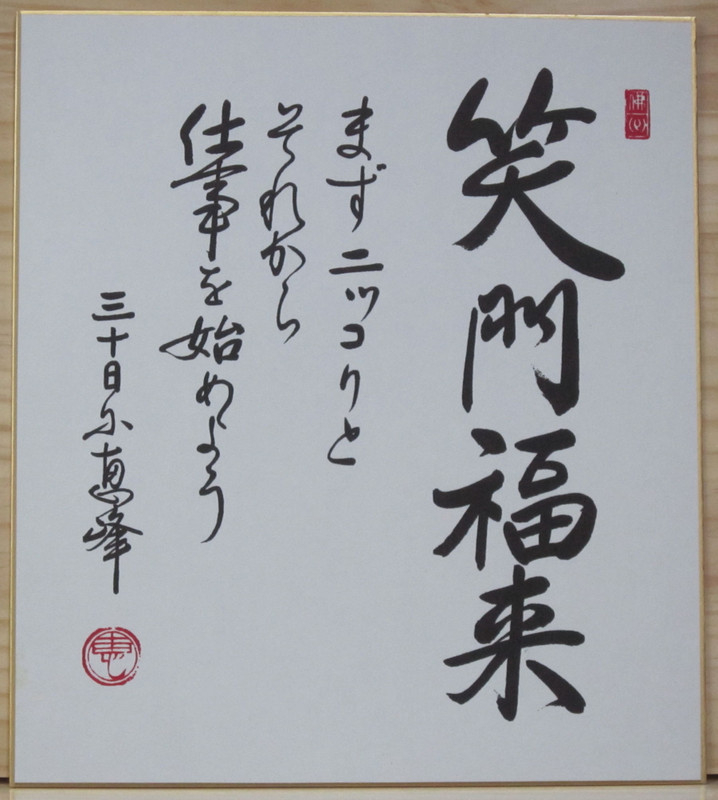 笑門福来
まずニッコリと
それから
仕事を始めよう
三十日尓恵峰
佛心
恵